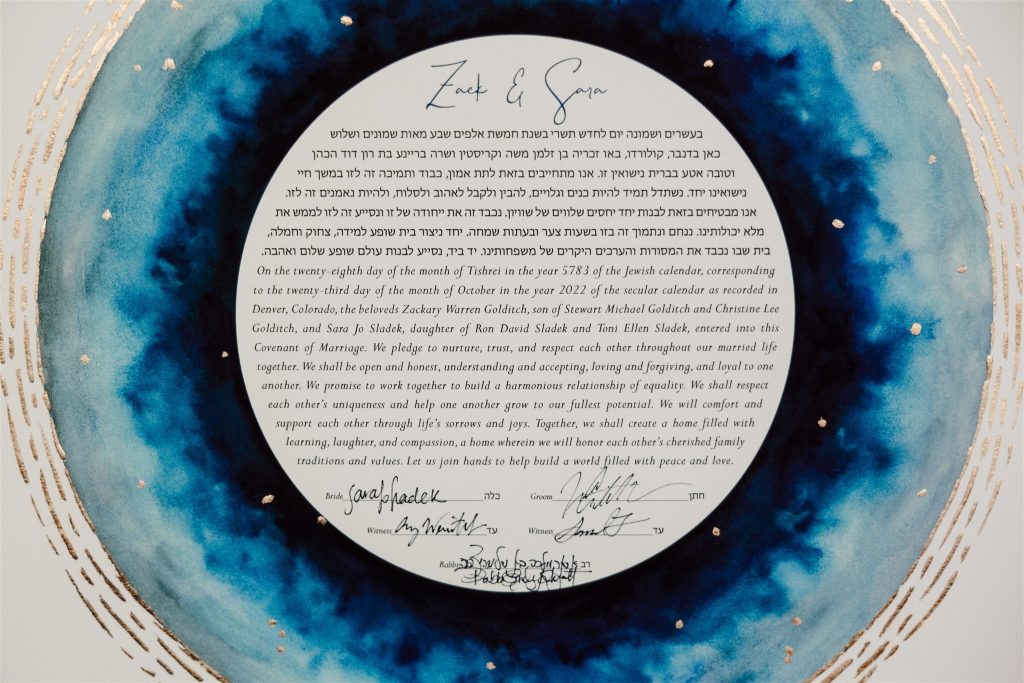 Zack & Sara
בעשרים ושמונה יום לחדש תשרי בשנת חמשת אלפים שבע מאות שמונים ושלוש
כאן בדנבר, קולורדו, באו זכריה בן זלמן משה וקריסטין ושרה בריינע בת רון דוד הכהן
וטובה אטע בברית נישואין זו. אנו מתחייבים בזאת לתת אמון, כבוד ותמיכה זה לזו במשך חיי
נישואינו יחד. נשתדל תמיד להיות כנים וגלויים, להבין ולקבל לאהוב ולסלוח, ולהיות נאמנים זה לזו.
אנו מבטיחים בזאת לבנות יחד יחסים שלווים של שוויון. נכבד זה את ייחודה של זו ונסייע זה לזו לממש את
מלא יכולותינו. ננחם ונתמוך זה בזו בשעות צער ובעתות שמחה. יחד ניצור בית שופע למידה, צחוק וחמלה,
בית שבו נכבד את המסורות והערכים היקרים של משפחותינו. יד ביד, נסייע לבנות עולם שופע שלום ואהבה.
On the twenty-eighth day of the month of Tishrei in the year 5783 of the Jewish calendar, corresponding
to the twenty-third day of the month of October in the year 2022 of the secular calendar as recorded in
Denver, Colorado, the beloveds Zackary Warren Golditch, son of Stewart Michael Golditch and Christine Lee
Golditch, and Sara Jo Sladek, daughter of Ron David Sladek and Toni Ellen Sladek, entered into this
Covenant of Marriage. We pledge to nurture, trust, and respect each other throughout our married life
together. We shall be open and honest, understanding and accepting, loving and forgiving, and loyal to one
another. We promise to work together to build a harmonious relationship of equality. We shall respect
each other's uniqueness and help one another grow to our fullest potential. We will comfort and
support each other through life's sorrows and joys. Together, we shall create a home filled with
learning, laughter, and compassion, a home wherein we will honor each other's cherished family
traditions and values. Let us join hands to help build a world filled with peace and love.
Bride Sara Jo Sladek כלה Groom חתן
Witness עד Witness עד
Rabbi רב